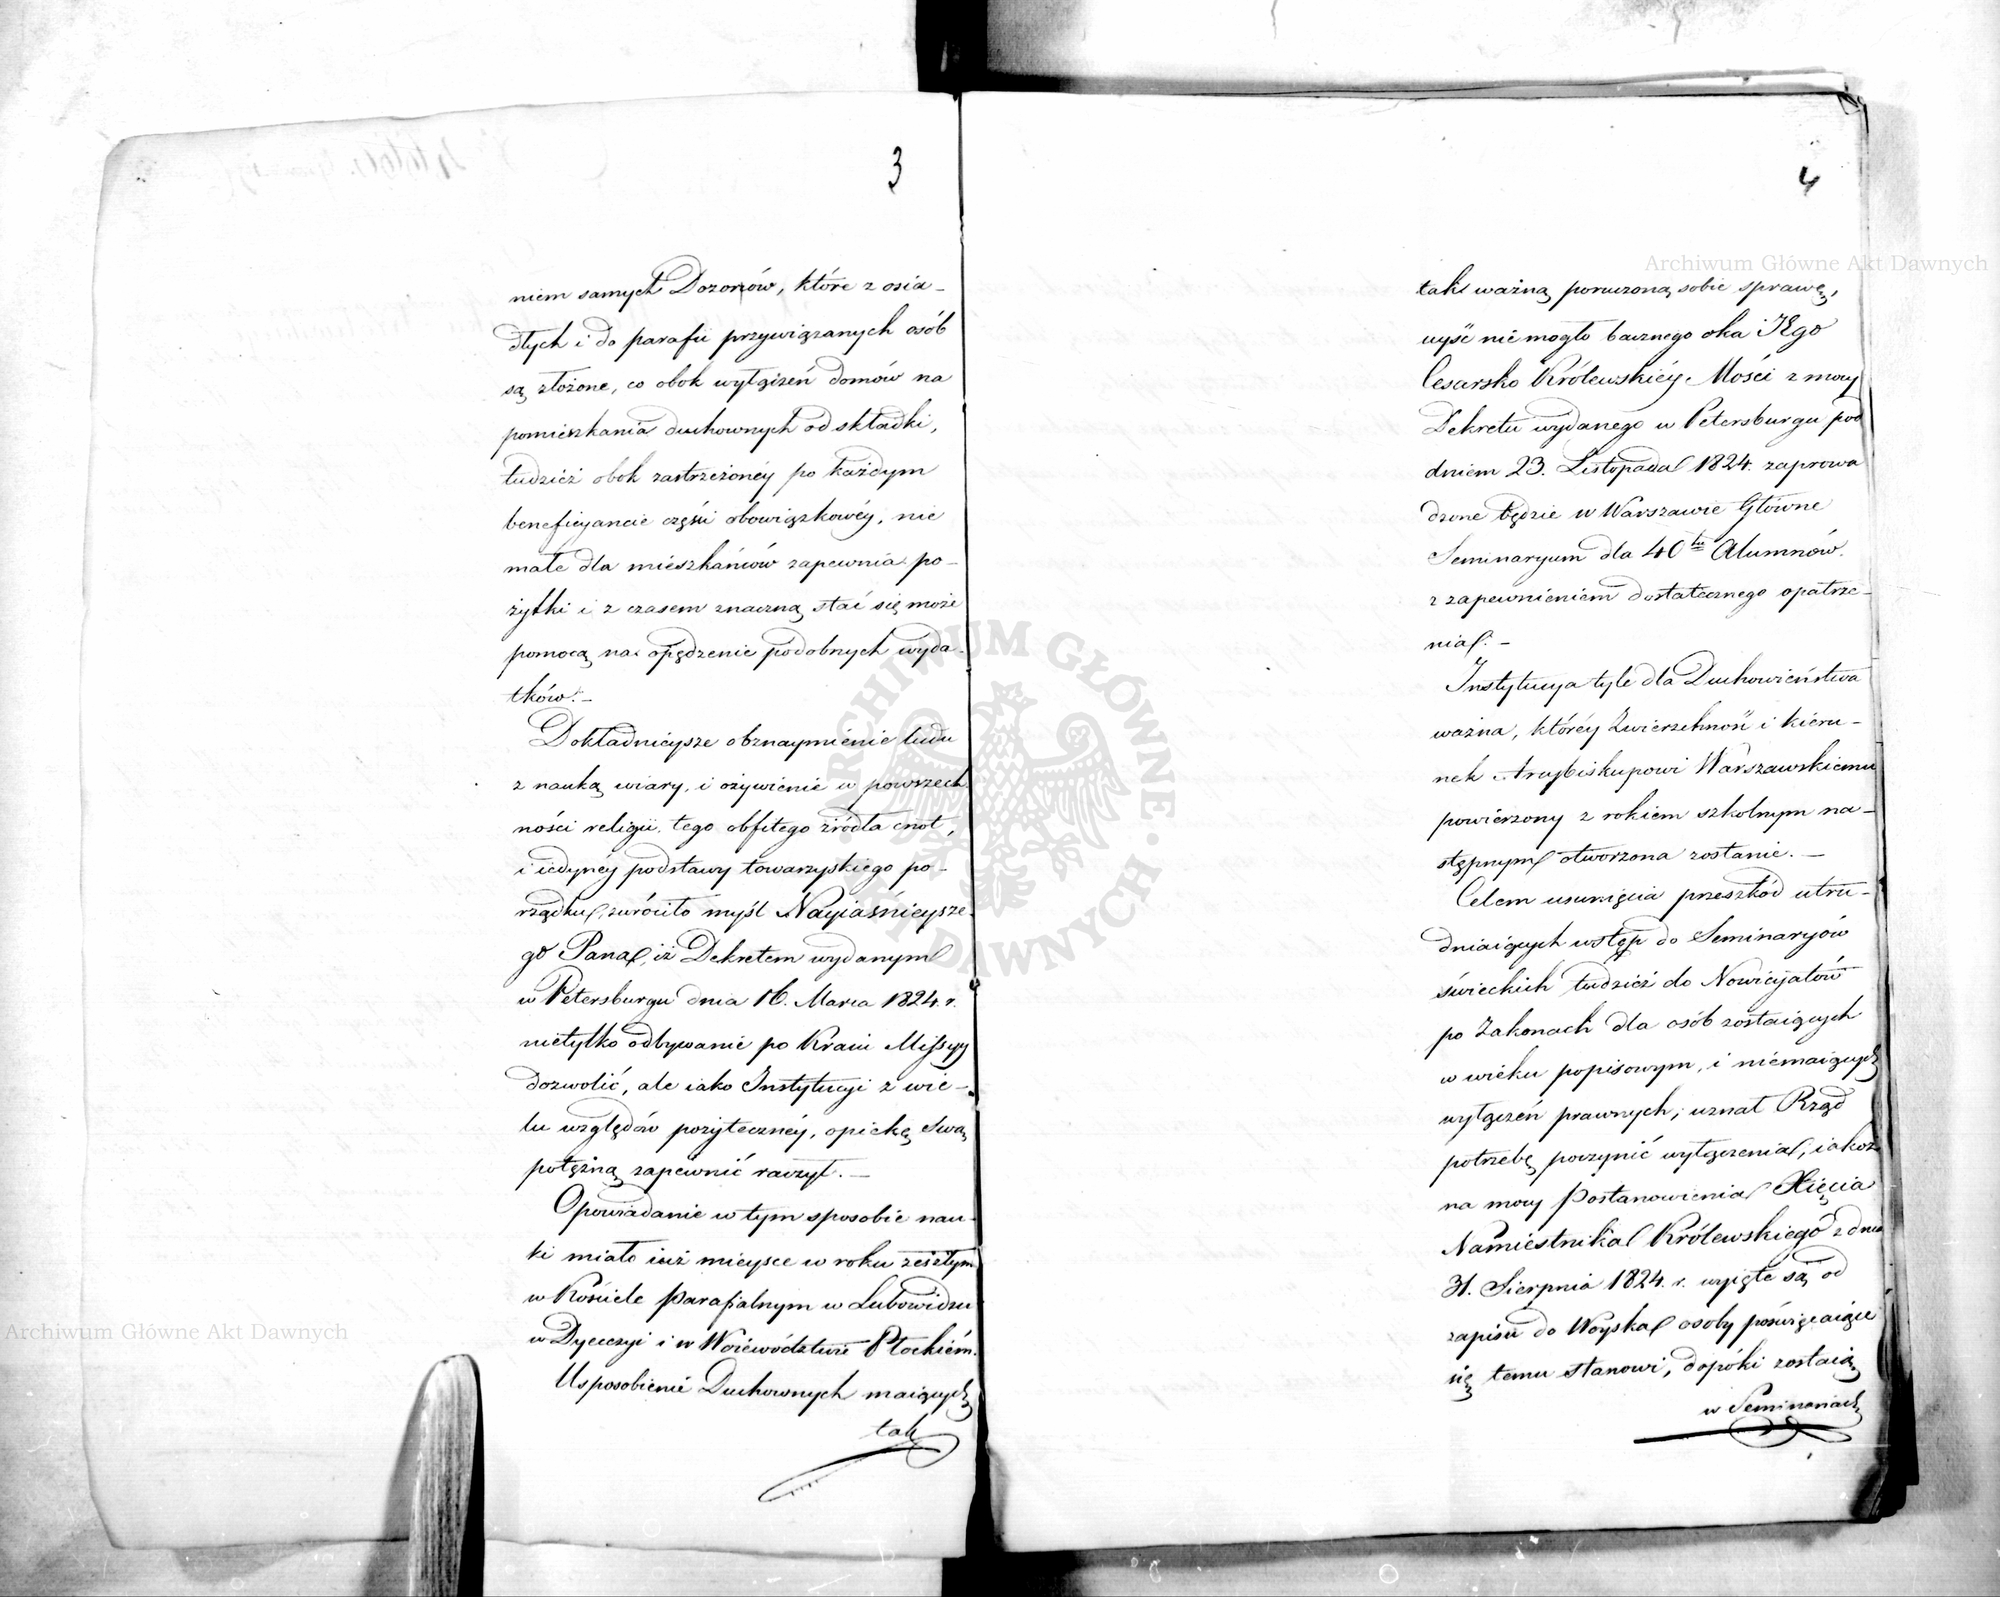 3
niem samych Dozorów, które z osia-
dłych i do parafii przywiązanych osób
są złożone, co obok wyłączeń domów na
pomieszkania duchownych od składki,
tudzież obok zastrzeżonéy po każdym
beneficyancie części obowiązkowéy, nie
małe dla mieszkańców zapewnia po-
żytki i z czasem znaczną stać się może
pomocą na opędzenie podobnych wyda-
tków.-
Dokładnieysze obznaymienie ludu
z nauką wiary, i ożywienie w powszech
ności religii, tego obfitego źródła cnot,
i iedynéy podstawy towarzyskiego po-
rządku, zwróciło myśl Nayiaśnieysze-
go Pana, iż Dekretem wydanym
w Petersburgu dnia 16. Marca 1824. r.
nietylko odbywanie po Kraiu Missyy
dozwolić, ale iako Instytucyi z wie-
lu względów pożyteczney, opiekę Swą
potężną zapewnić raczył. —
Opowiadanie w tym sposobie nau-
ki miało iuż mieysce w roku zeszłym
w Kościele parafialnym w Lubowidzu
w Dyecezyi i w Woiewództwie Płockiém.
Usposobienie Duchownych maiących
tak
4
tak ważną poruczoną sobie sprawę,
uyść nie mogło bacznego oka JEgo
Cesarsko Królewskiéy Mości z mocy
Dekretu wydanego w Petersburgu pod
dniem 23. Listopada 1824. zaprowa
dzone będzie w Warszawie Główne
Seminaryum dla 40tu Alumnów.
z zapewnieniem dostatecznego opatrze-
nia. -
Instytucya tyle dla Duchowieństwa
ważna, któréy Zwierzchność i kieru-
nek Arcybiskupowi Warszawskiemu
powierzony z rokiem szkolnym na-
stępnym otworzona zostanie. —
Celem usunięcia przeszkód utru-
dniaiących wstęp do Seminaryów
świeckich tudzież do Nowicyatów
po Zakonach dla osób zostaiących
w wieku popisowym, i niemaiących
wyłączeń prawnych, uznał Rząd
potrzebę poczynić wyłączenia, iakoż
na mocy Postanowienia Xięcia
Namiestnika Królewskiego z dnia
31. Sierpnia 1824. r. wyięte są od
zapisu do Woyska osoby poświęcaiące
się temu stanowi, dopóki zostaią
w Seminariach
Archiwum Główne Akt Dawnych
Archiwum Główne Akt Dawnych
ARCHIWUM GŁÓWNE AKT DAWNYCH